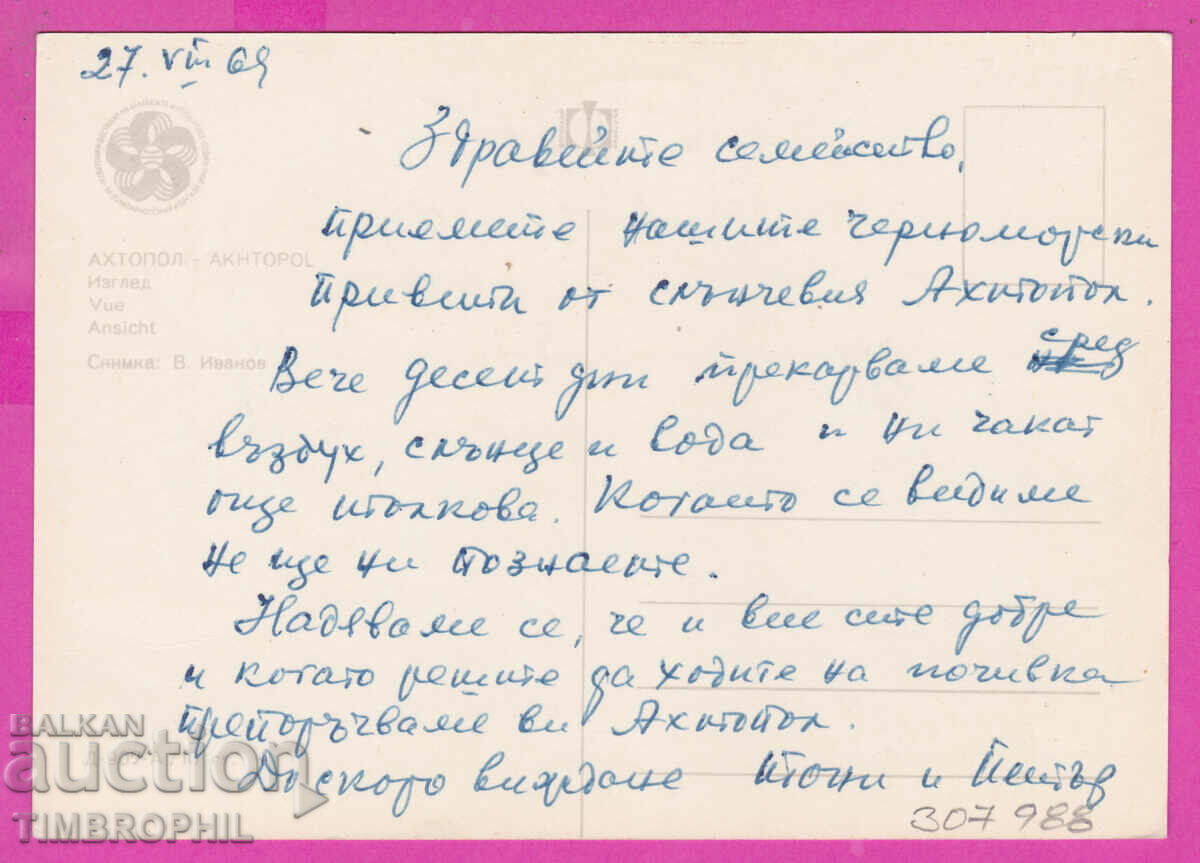 27. VIII 69
Здравейте семейство,
приемете нашите черноморски
АХТОПОЛ - AKHTOPOL
Изглед
Vue
Ansicht
Снимка: В. Иванов
привети от слънчевия Ахтопол.
Вече десет дни прекарваме сред
въздух, слънце и вода и ни чакат
още толкова. Когато се видиме
не ще ни познаете.
Надяваме се, че и вие сте добре
и когато решите да ходите на почивка
препоръчваме ви Ахтопол.
До скоро виждане Тони и Петър
307 988
BALKAN
auction
TIMBROPHIL